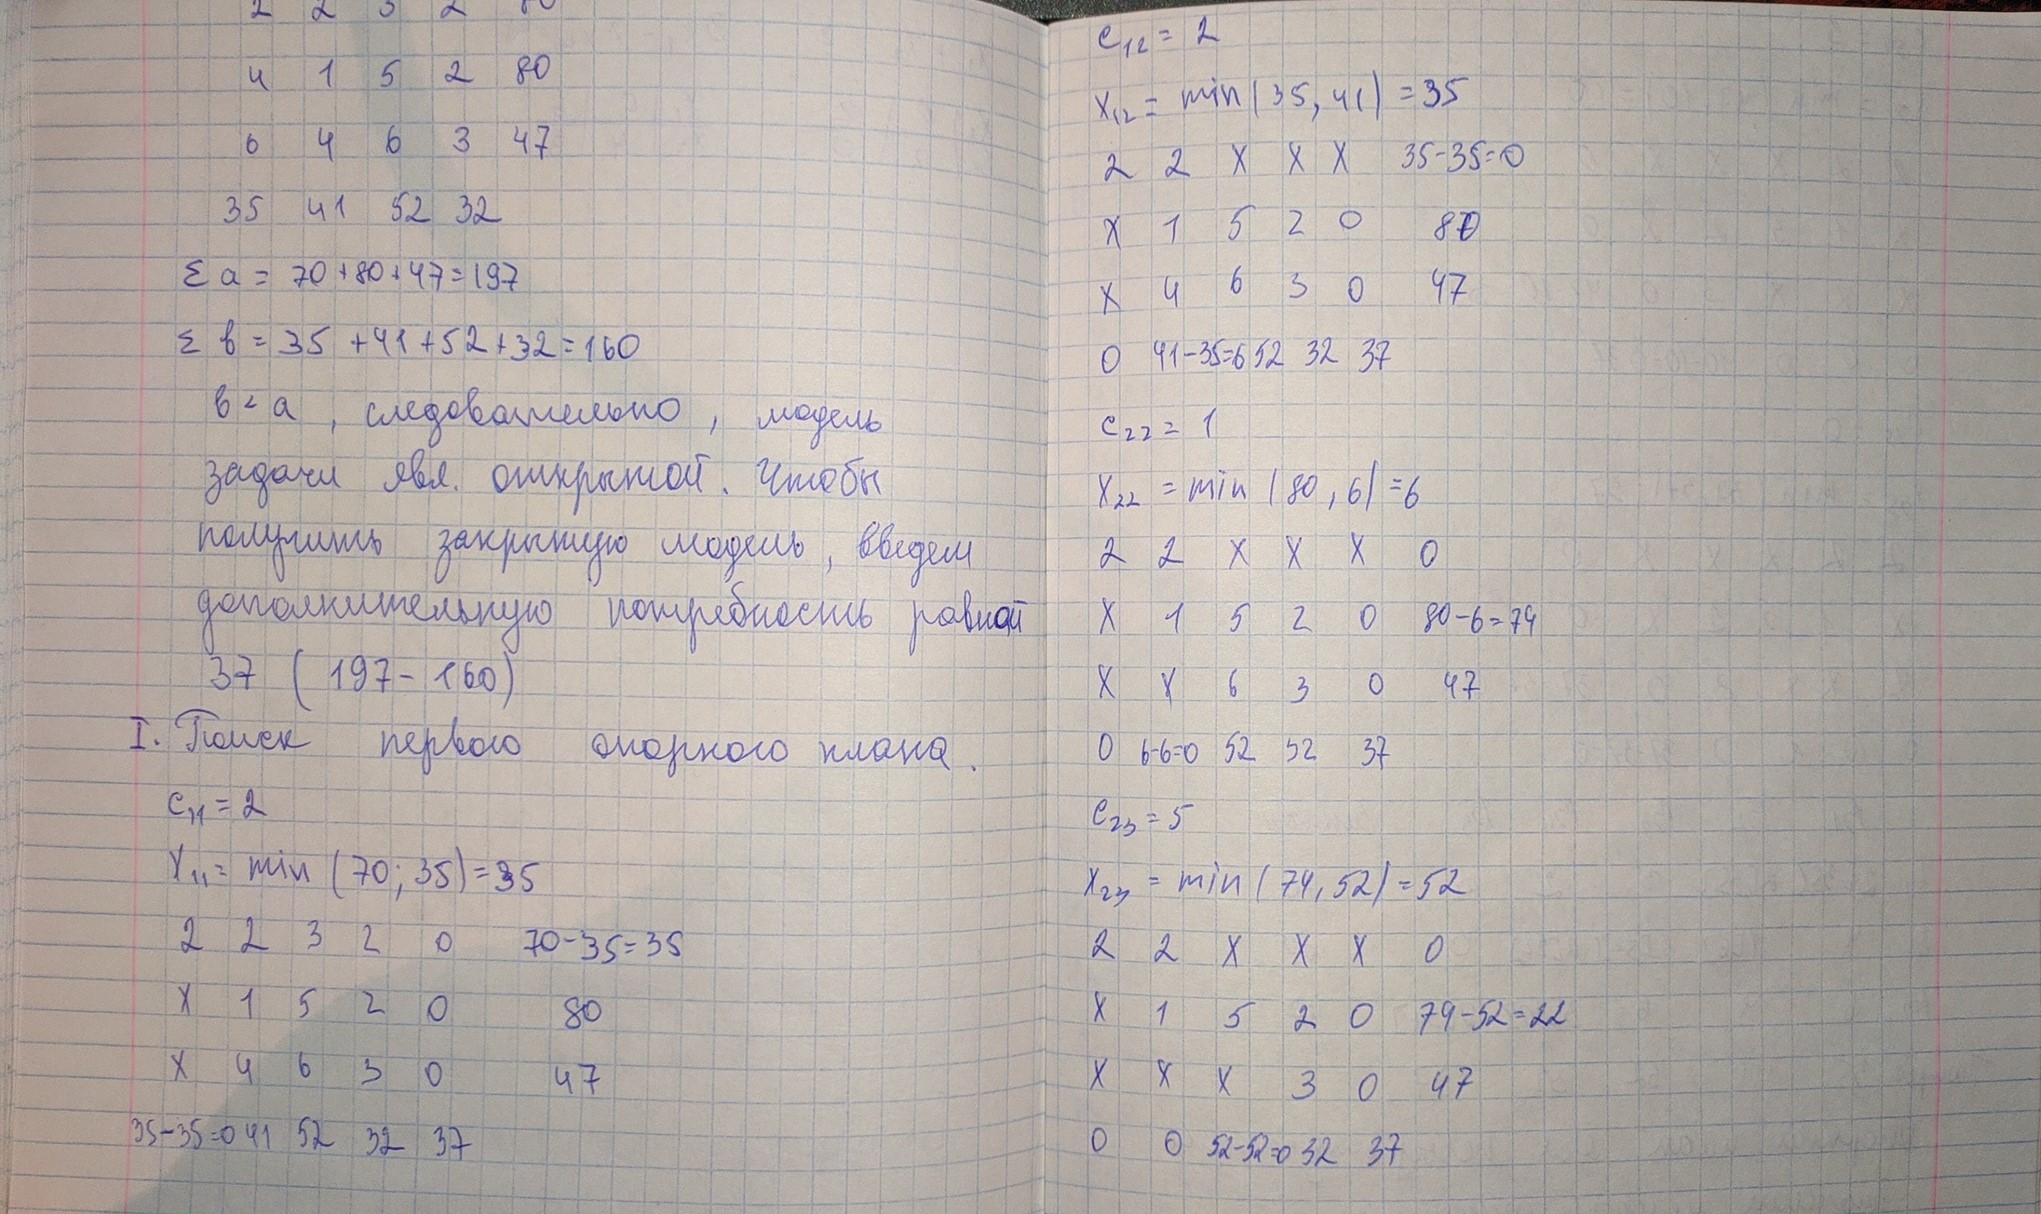 2 2 3 2 80
4 1 5 2 80
6 4 6 3 47
35 41 52 32
Σ a = 70+80+47=197
Σ b = 35+41+52+32=160
b < a, следовательно, модель
задачи явл. открытой. Чтобы
получить закрытую модель, введем
дополнительную потребность равной
37 (197-160)
I. Поиск первого опорного плана.
C₁₁ = 2
X₁₁ = min (70; 35) = 35
2 2 3 2 0 70-35=35
X 1 5 2 0 80
X 4 6 3 0 47
35-35=0 41 52 32 37
C₁₂ = 2
X₁₂ = min (35, 41) = 35
2 2 X X X 35-35=0
X 1 5 2 0 80
X 4 6 3 0 47
0 41-35=6 52 32 37
C₂₂ = 1
X₂₂ = min (80, 6) = 6
2 2 X X X 0
X 1 5 2 0 80-6=74
X X 6 3 0 47
0 6-6=0 52 32 37
C₂₃ = 5
X₂₃ = min (74, 52) = 52
2 2 X X X 0
X 1 5 2 0 74-52=22
X X X 3 0 47
0 0 52-52=0 32 37